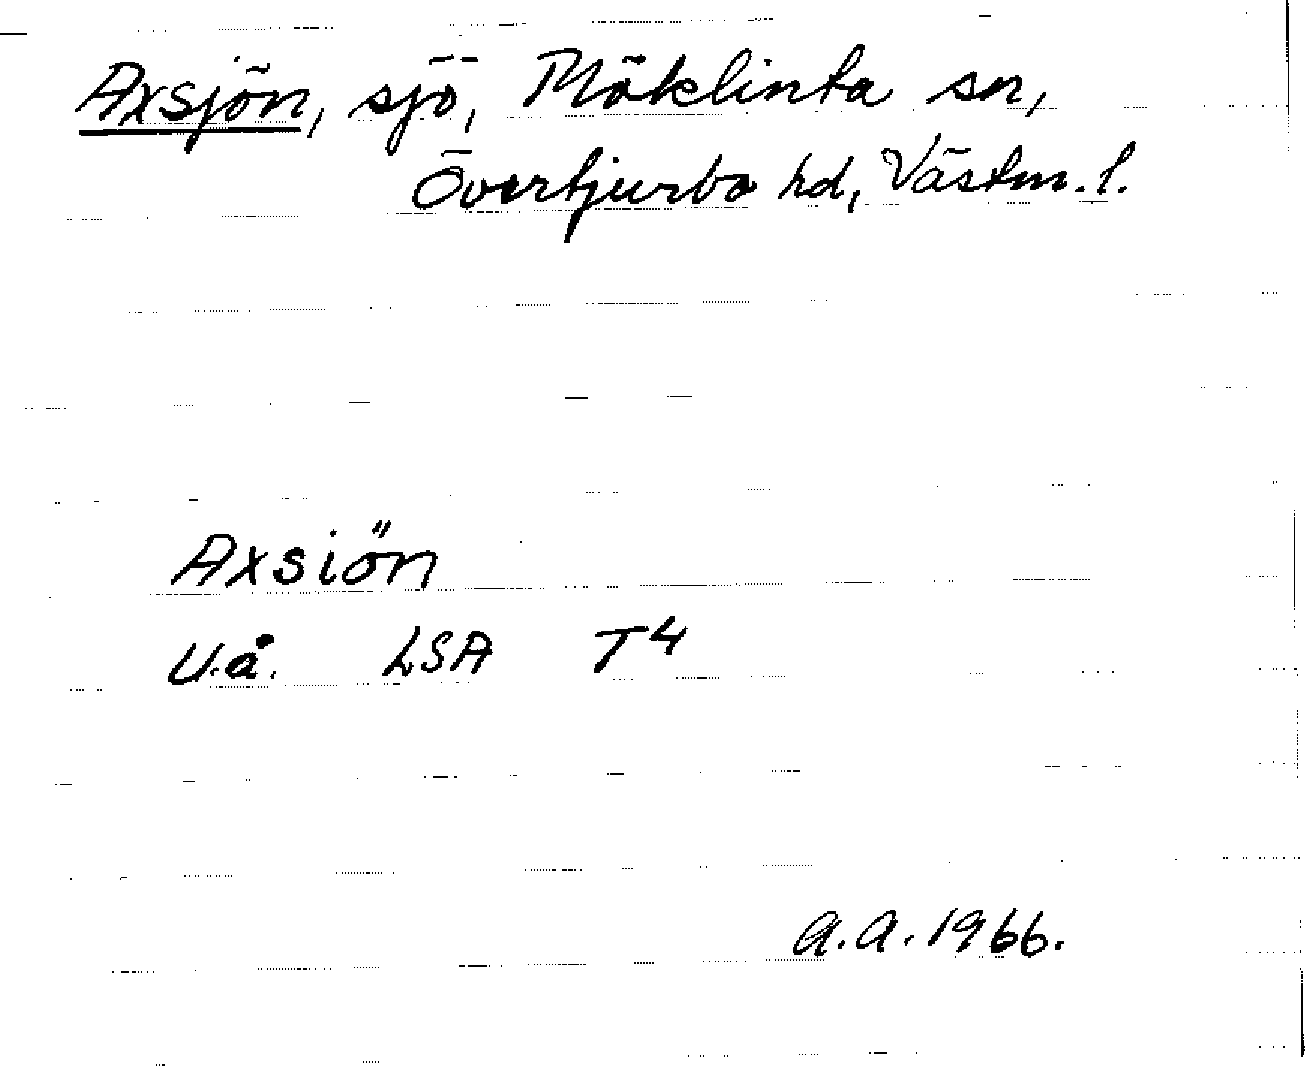 Axsjön, sjö, Möklinta sn,
Övertjurbo hd, Västm. l.
Axsiön
U.å. LSA T4
a.a. 1966.